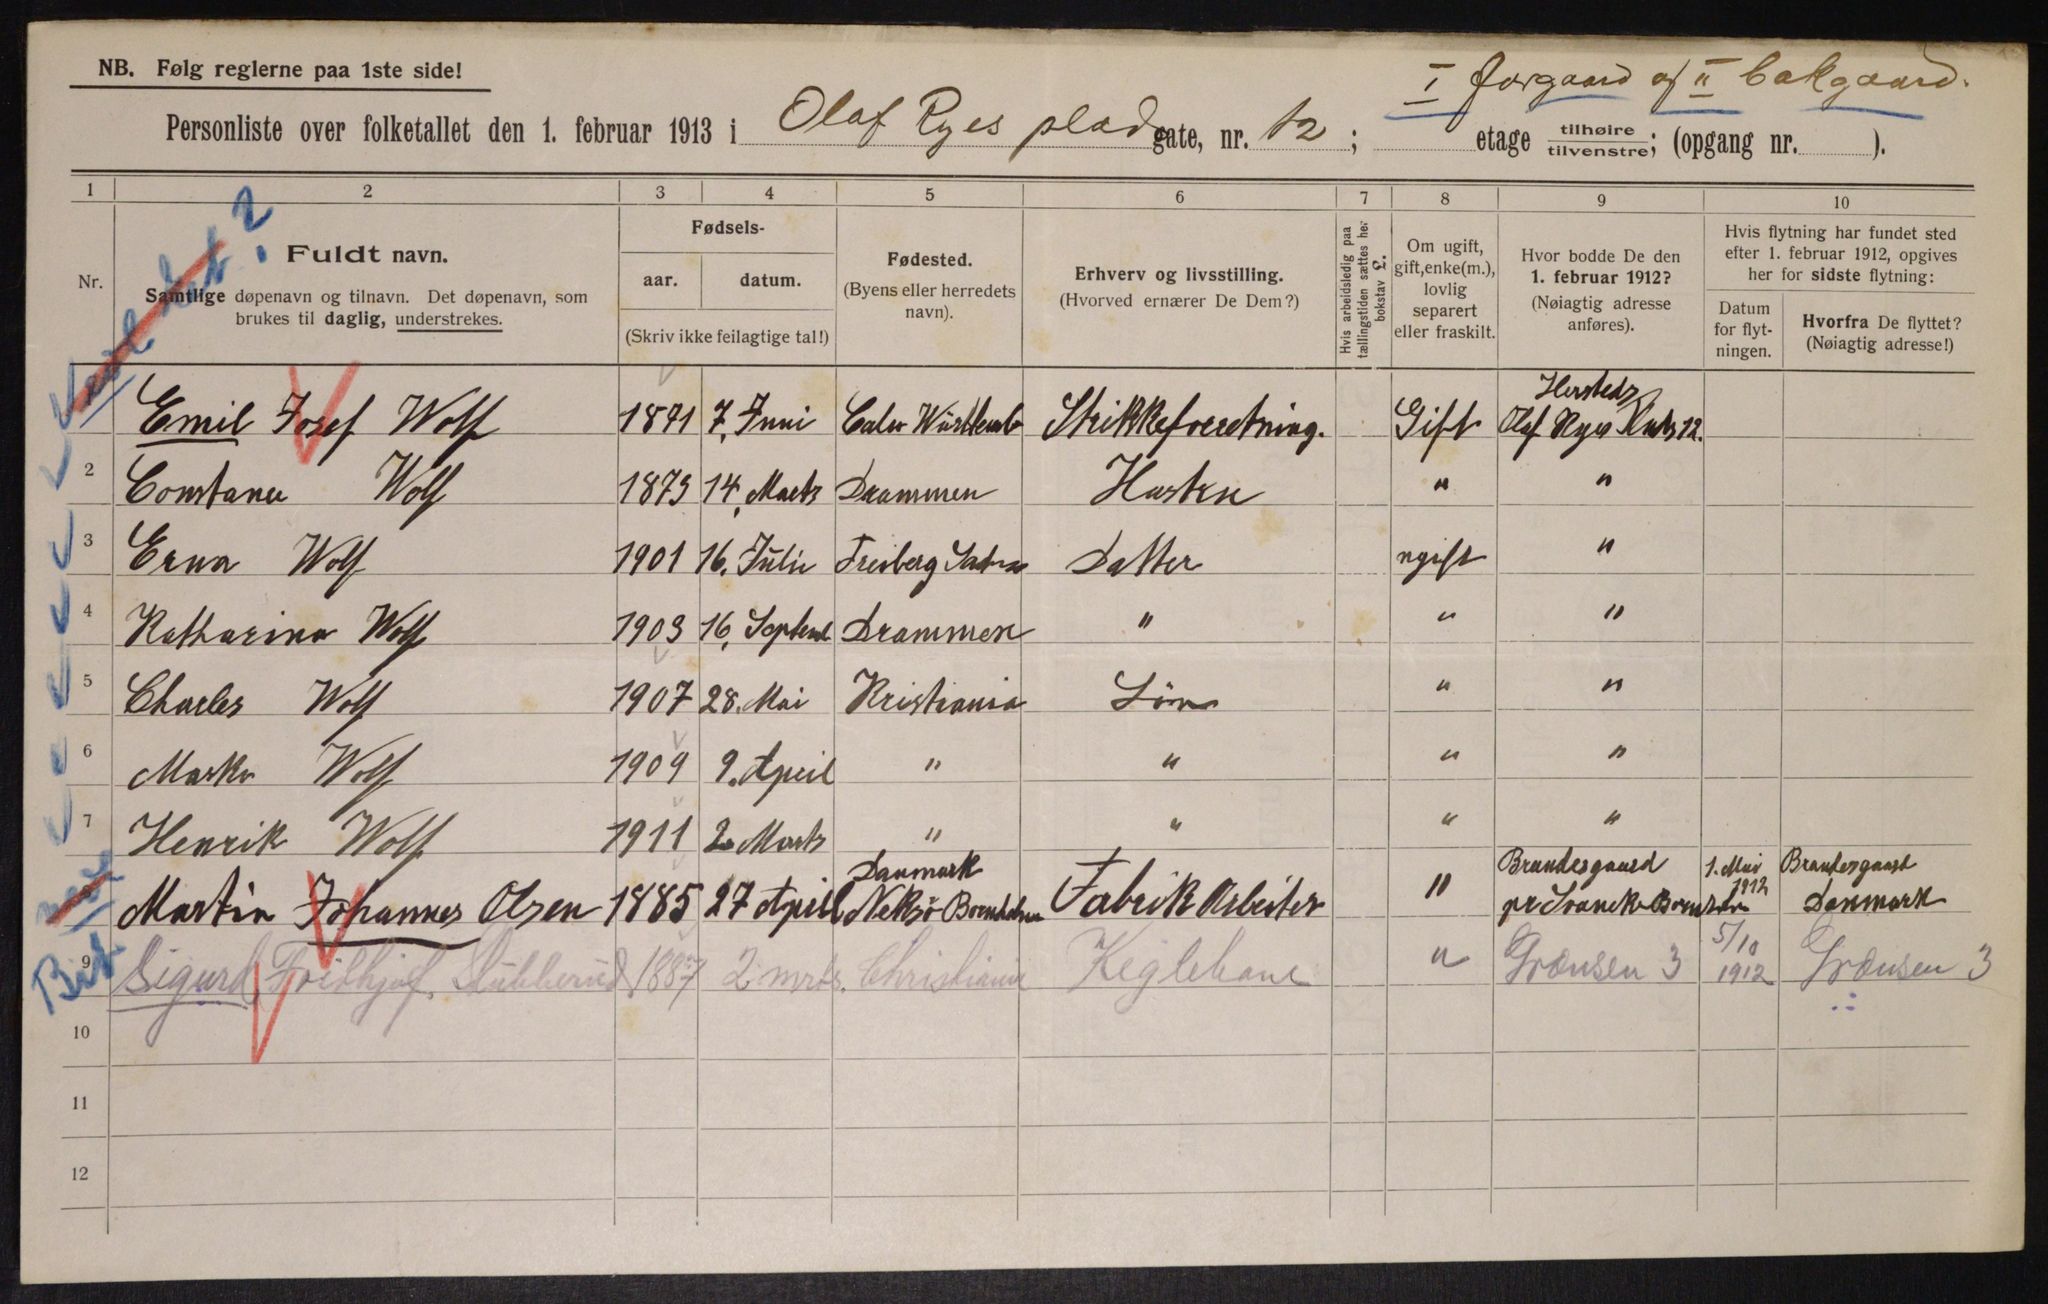 NB. Følg reglerne paa 1ste side!
I forgaard og II bakgaard.
Personliste over folketallet den 1. februar 1913 i Olaf Ryes plads gate, nr. 12; etage tilhøire/tilvenstre; (opgang nr. ).
1 2 3 4 5 6 7 8 9 10
Nr.
Fuldt navn.
Samtlige døpenavn og tilnavn. Det døpenavn, som
brukes til daglig, understrekes.
Fødsels-
aar. datum.
(Skriv ikke feilagtige tal!)
Fødested.
(Byens eller herredets
navn).
Erhverv og livsstilling.
(Hvorved ernærer De Dem?)
Hvis arbeidsledig paa
tællingstiden sættes her
bokstav L.
Om ugift,
gift, enke(m.),
lovlig
separert
eller fraskilt.
Hvor bodde De den
1. februar 1912?
(Nøiagtig adresse
anføres).
Hvis flytning har fundet sted
efter 1. februar 1912, opgives
her for sidste flytning:
Datum
for flyt-
ningen.
Hvorfra De flyttet?
(Nøiagtig adresse!)
Emil Josef Wolf 1871 7. Juni Calw Württemb Strikkeforretning. Gift Olaf Ryes Plads 12.
2 Constance Wolf 1873 14. Marts Drammen Hustru " "
3 Erna Wolf 1901 16. Juli Freiberg Datter ugift "
4 Katharina Wolf 1903 16. Septemb Drammen " " "
5 Charles Wolf 1907 28. Mai Kristiania Sön " "
6 Marko Wolf 1909 9. April " " " "
7 Henrik Wolf 1911 2. Marts " " " "
Danmark Brandesgaard 1. Mai Brandesgaard
8 Martin Johannes Olsen 1885 27 April Neksö Bornholm Fabrik Arbeiter " pr Svaneke 1912 Danmark
9 Sigurd Fridthjof Stubberud 1887 2 mrts. Christiania Keglebane " Grænsen 3 5/10 1912 Grænsen 3
10
11
12